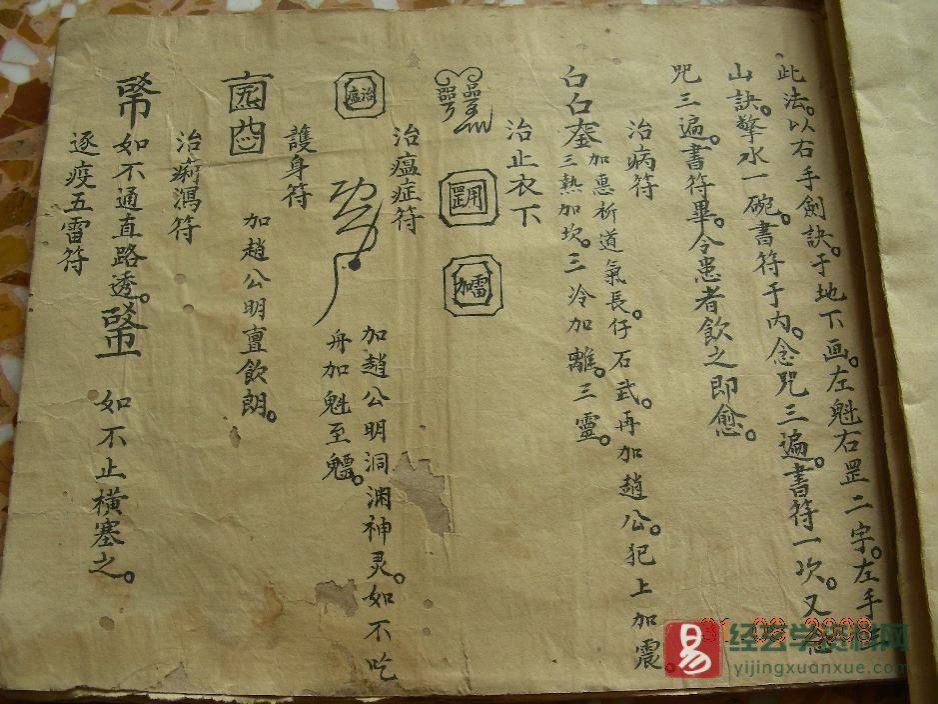 此法。以右手劍訣。于地下画。左魁右罡二字。左手
山訣。擎水一碗。書符于內。念咒三遍。書符一次。又念
咒三遍。書符畢。令患者飲之即愈。
治病符
加惠析道氣長。仔石武。再加趙公。犯上加震。
三熱加坎。三冷加離。三靈。
治止衣下
治瘟症符
加趙公明洞渊神灵。如不吃
舟加魁至魓。
護身符
加趙公明亶飲朗。
治痢瀉符
如不通直路透。
如不止橫塞之。
逐疫五雷符
易 经艺学资料网
yijingxuanxue.com